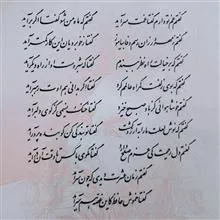 گفتم غم تو دارم گفتا غمت سر آید گفتم که ماه من شو گفتا اگر برآید
گفتم ز مهرورزان رسم وفا بیاموز گفتا ز خوبرویان این کار کمتر آید
گفتم که بر خیالت راه نظر ببندم گفتا که شبروست او از راه دیگر آید
گفتم که بوی زلفت گمراه عالمم کرد گفتا اگر بدانی هم اوت رهبر آید
گفتم خوشا هوایی کز باد صبح خیزد گفتا خنک نسیمی کز کوی دلبر آید
گفتم که نوش لعلت ما را به آرزو کشت گفتا تو بندگی کن کو بنده پرور آید
گفتم دل رحیمت کی عزم صلح دارد گفتا مگوی با کس تا وقت آن درآید
گفتم زمان عشرت دیدی که چون سر آمد
گفتا خموش حافظ کاین غصه هم سر آید